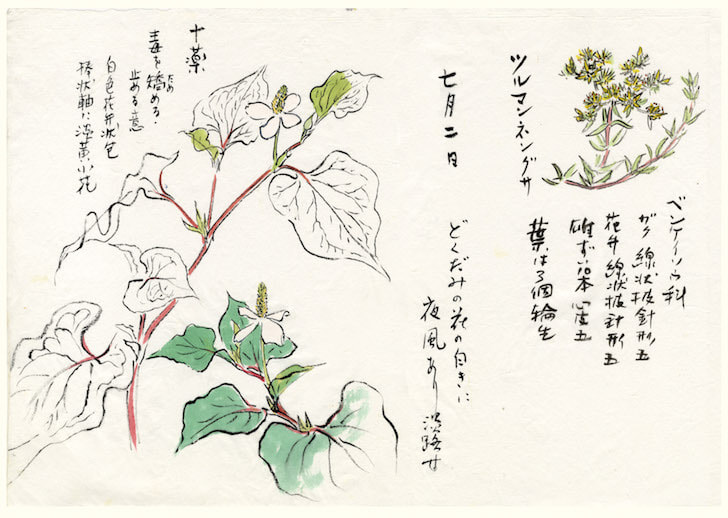 ツルマンネングサ
ベンケイソウ科
ガク線状披針形五
花弁線状披針形五
雄ずい10本心皮五
葉は3個輪生
七月二日
どくだみの花の白きに
夜風あり 淡路女
十薬
毒を矯める・
ため
止める意
白色花弁状包
棒状軸に淡黄小花